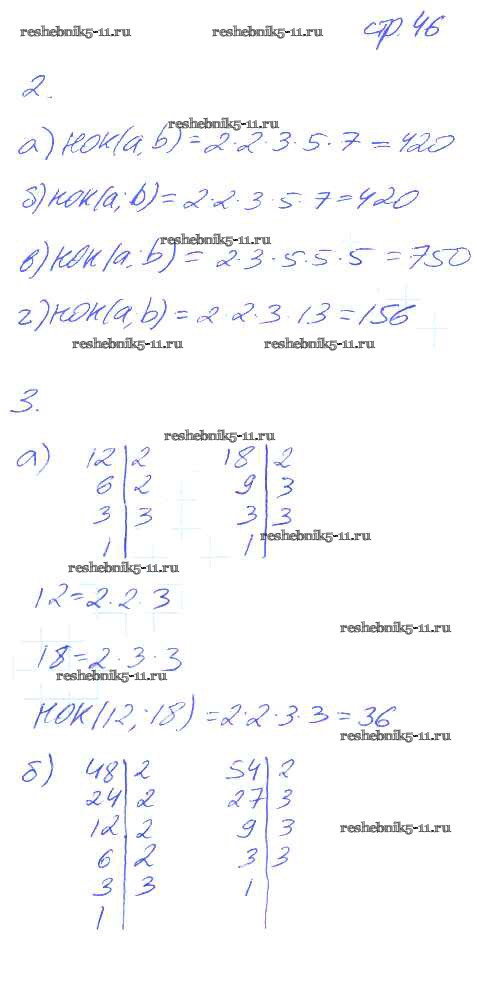 reshebnik5-11.ru reshebnik5-11.ru стр. 46
2.
reshebnik5-11.ru
а) НОК(a, b) = 2·2·3·5·7 = 420
б) НОК(a; b) = 2·2·3·5·7 = 420
reshebnik5-11.ru
в) НОК(a; b) = 2·3·5·5·5 = 750
г) НОК(a, b) = 2·2·3·13 = 156
reshebnik5-11.ru reshebnik5-11.ru
3.
reshebnik5-11.ru
а) 12|2 18|2
6|2 9|3
3|3 3|3
reshebnik5-11.ru
1| 1|
reshebnik5-11.ru
12 = 2·2·3
reshebnik5-11.ru
18 = 2·3·3
reshebnik5-11.ru
НОК(12; 18) = 2·2·3·3 = 36
reshebnik5-11.ru
б) 48|2 54|2
24|2 27|3
12|2 9|3
reshebnik5-11.ru
6|2 3|3
3|3 1|
1|